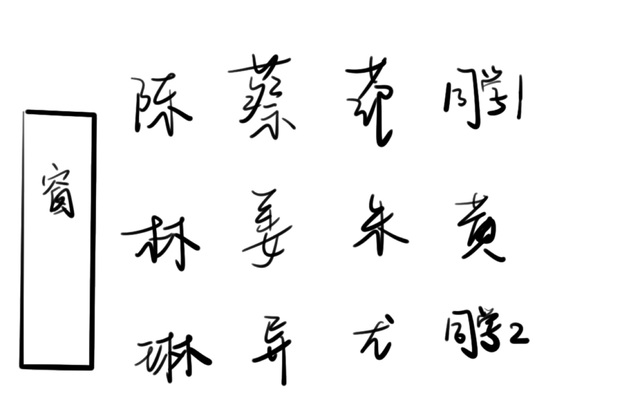 陈 蔡 范 同学1
窗
林 姜 朱 黄
琳 异 尤 同学2